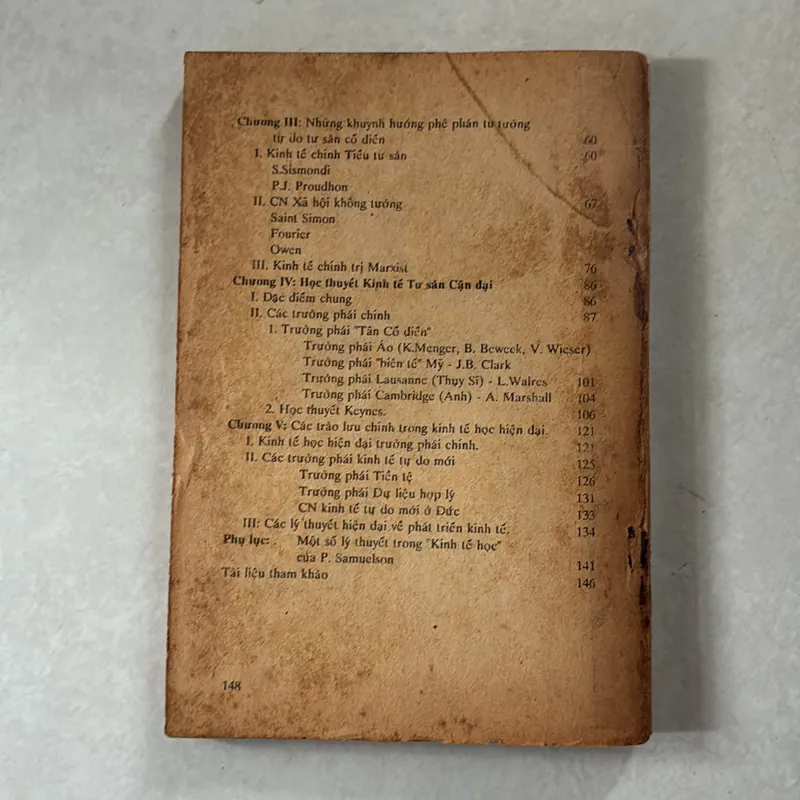 Chương III: Những khuynh hướng phê phán tư tưởng
tự do tư sản cổ điển 60
I. Kinh tế chính Tiểu tư sản 60
S.Sismondi
P.J. Proudhon
II. CN Xã hội không tưởng 67
Saint Simon
Fourier
Owen
III. Kinh tế chính trị Marxist 76
Chương IV: Học thuyết Kinh tế Tư sản Cận đại 86
I. Đặc điểm chung 86
II. Các trường phái chính 87
1. Trường phái "Tân Cổ điển"
Trường phái Áo (K.Menger, B. Beweck, V. Wieser)
Trường phái "biên tế" Mỹ - J.B. Clark
Trường phái Lausanne (Thụy Sĩ) - L.Walres 101
Trường phái Cambridge (Anh) - A. Marshall 104
2. Học thuyết Keynes. 106
Chương V: Các trào lưu chính trong kinh tế học hiện đại. 121
I. Kinh tế học hiện đại trường phái chính. 121
II. Các trường phái kinh tế tự do mới 125
Trường phái Tiền tệ 126
Trường phái Dự liệu hợp lý 131
CN kinh tế tự do mới ở Đức 133
III: Các lý thuyết hiện đại về phát triển kinh tế. 134
Phụ lục: . Một số lý thuyết trong "Kinh tế học"
của P. Samuelson 141
Tài liệu tham khảo 146
148